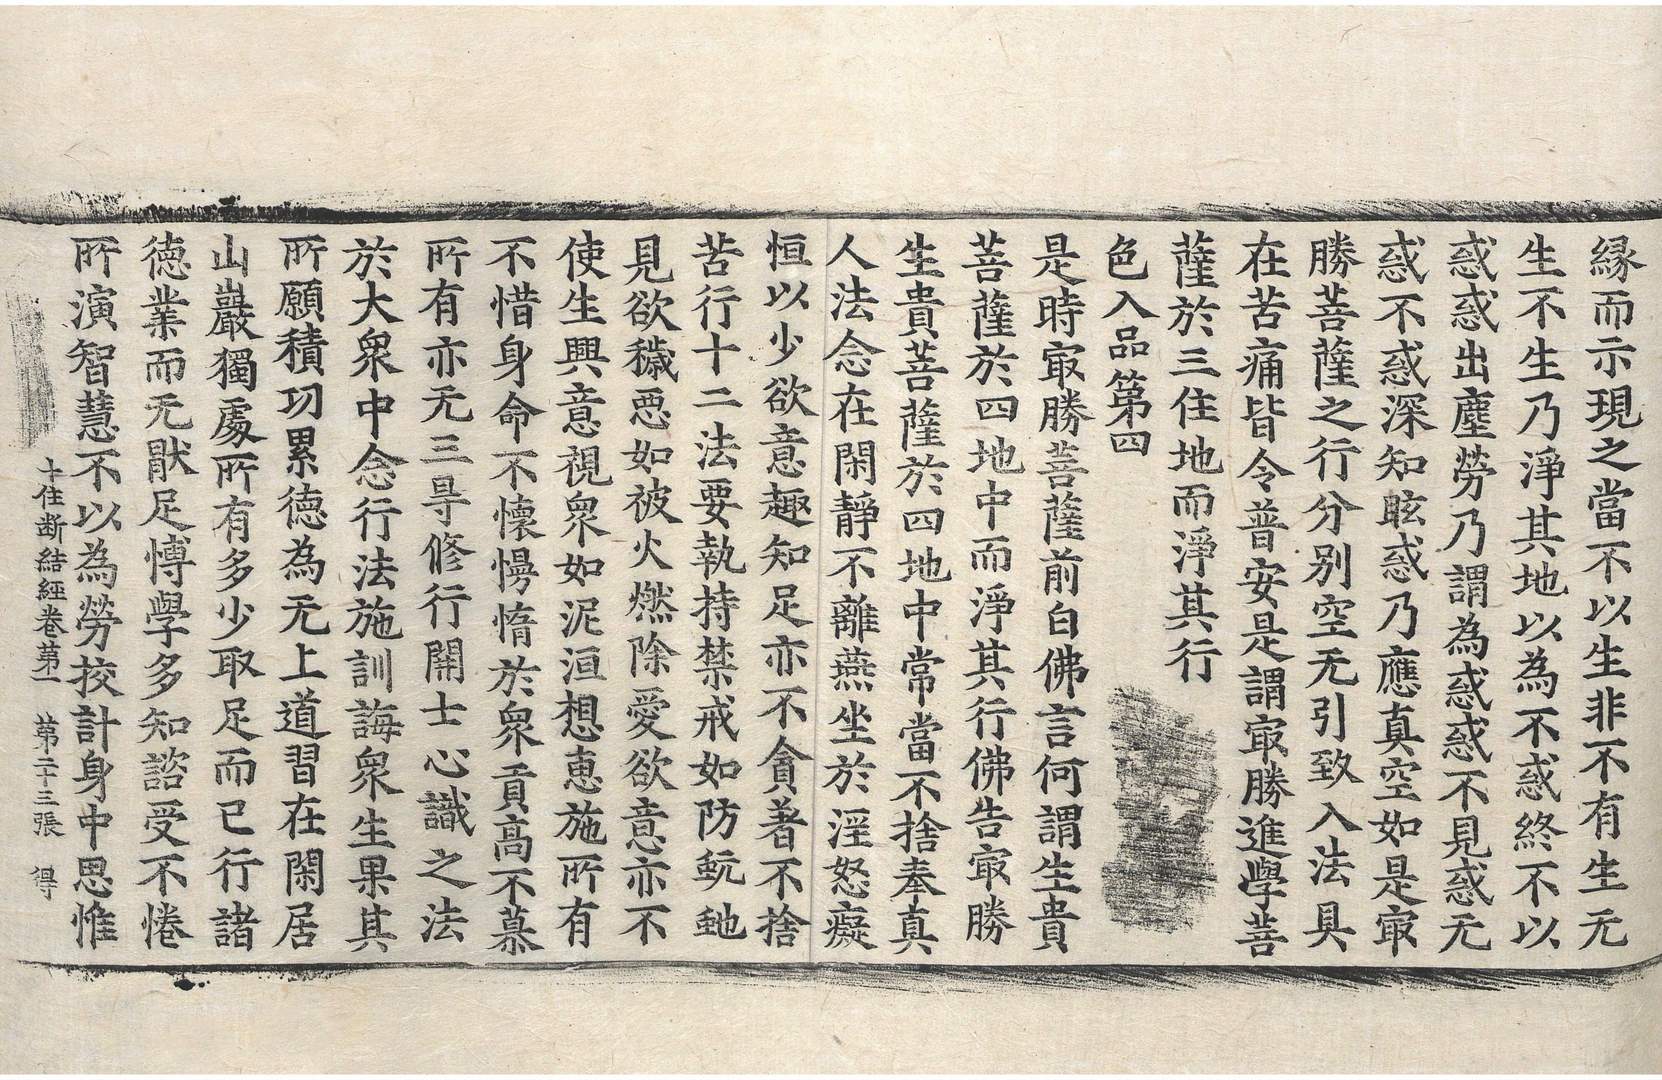 縁而示現之當不以生非不有生无
生不生乃淨其地以為不惑終不以
惑惑出塵勞乃謂為惑惑不見惑无
惑不惑深知眩惑乃應真空如是㝡
勝菩薩之行分別空无引致入法具
在苦痛皆令普安是謂㝡勝進學菩
薩於三住地而淨其行
色入品第四
是時㝡勝菩薩前白佛言何謂生貴
菩薩於四地中而淨其行佛告㝡勝
生貴菩薩於四地中常當不捨奉真
人法念在閑靜不離燕坐於淫怒癡
恒以少欲意趣知足亦不貪著不捨
苦行十二法要執持禁戒如防蚖虵
見欲穢惡如被火燃除愛欲意亦不
使生興意視衆如泥洹想恵施所有
不惜身命不懷慢惰於衆貢高不慕
所有亦无三㝵修行開士心識之法
於大衆中念行法施訓誨衆生果其
所願積功累德為无上道習在閑居
山巖獨處所有多少取足而已行諸
德業而无猒足博學多知諮受不惓
所演智慧不以為勞挍計身中思惟
十住斷結經卷第一　第二十三張　得